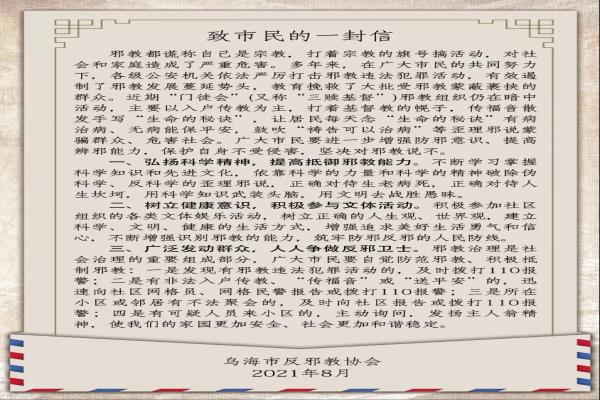 致市民的一封信
邪教都谎称自己是宗教，打着宗教的旗号搞活动，对社
会和家庭造成了严重危害。多年来，在广大市民的共同努力
下，各级公安机关依法严厉打击邪教违法犯罪活动，有效遏
制了邪教发展蔓延势头，教育挽救了大批受邪教蒙蔽裹挟的
群众。近期“门徒会”(又称“三赎基督”)邪教组织仍在暗中
活动，主要以入户传教为主，打着基督教的幌子，传福音散
发手写“生命的秘诀”，让居民每天念“生命的秘诀”有病
治病、无病能保平安，鼓吹“祷告可以治病”等歪理邪说蒙
骗群众、危害社会。广大市民要进一步增强防邪意识、提高
辨邪能力，保护自身不受侵害，坚决对邪教说不。
一、弘扬科学精神，提高抵御邪教能力。不断学习掌握
科学知识和先进文化，依靠科学的力量和科学的精神破除伪
科学、反科学的歪理邪说，正确对待生老病死，正确对待人
生坎坷，用科学知识武装头脑，用文明去战胜愚昧。
二、树立健康意识，积极参与文体活动。积极参加社区
组织的各类文体娱乐活动，树立正确的人生观、世界观，建立
科学、文明、健康的生活方式，增强追求美好生活勇气和信
心，不断增强识别邪教的能力，筑牢防邪反邪的人民防线。
三、广泛发动群众，人人争做反邪卫士。邪教治理是社
会治理的重要组成部分，广大市民要自觉防范邪教、积极抵
制邪教：一是发现有邪教违法犯罪活动的，及时拨打110报
警；二是有非法入户传教、“传福音”或“送平安”的，迅
速向社区网格员、网格民警报告或拨打110报警；三是所在
小区或邻居有不法聚会的，及时向社区报告或拨打110报
警；四是有可疑人员来小区的，主动询问，发扬主人翁精
神，使我们的家园更加安全、社会更加和谐稳定。
乌海市反邪教协会
2021年8月